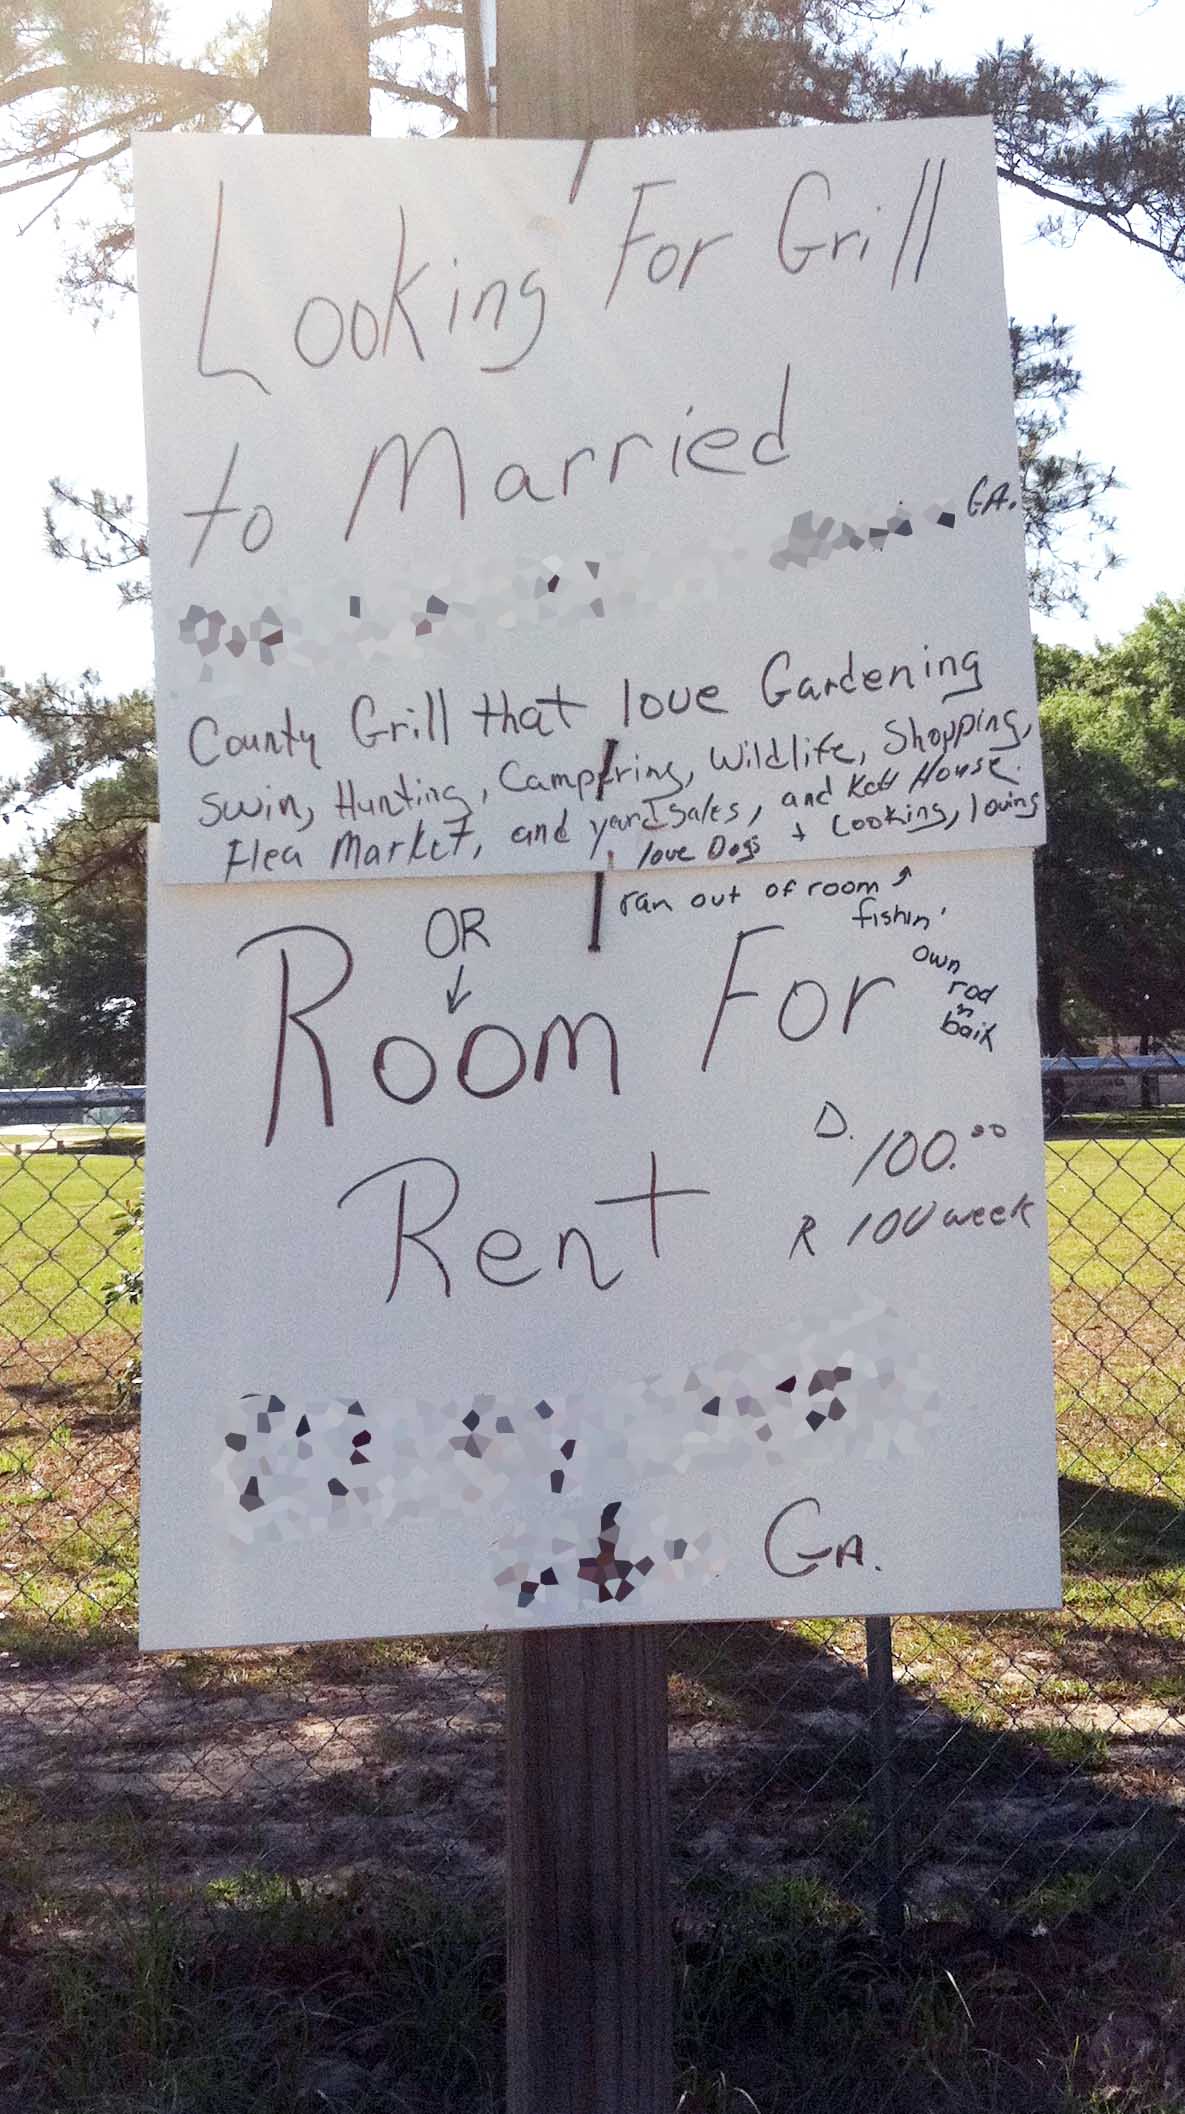 Looking For Grill
to Married
GA.
County Grill that love Gardening
Swin, Hunting, Camppring, Wildlife, Shopping,
Flea Market, and yard Sales, and House.
love Dogs + Cooking, loving
ran out of room
fishin'
own
rod
n
bait
OR
Room For
Rent
D. 100.00
R 100 week
GA.